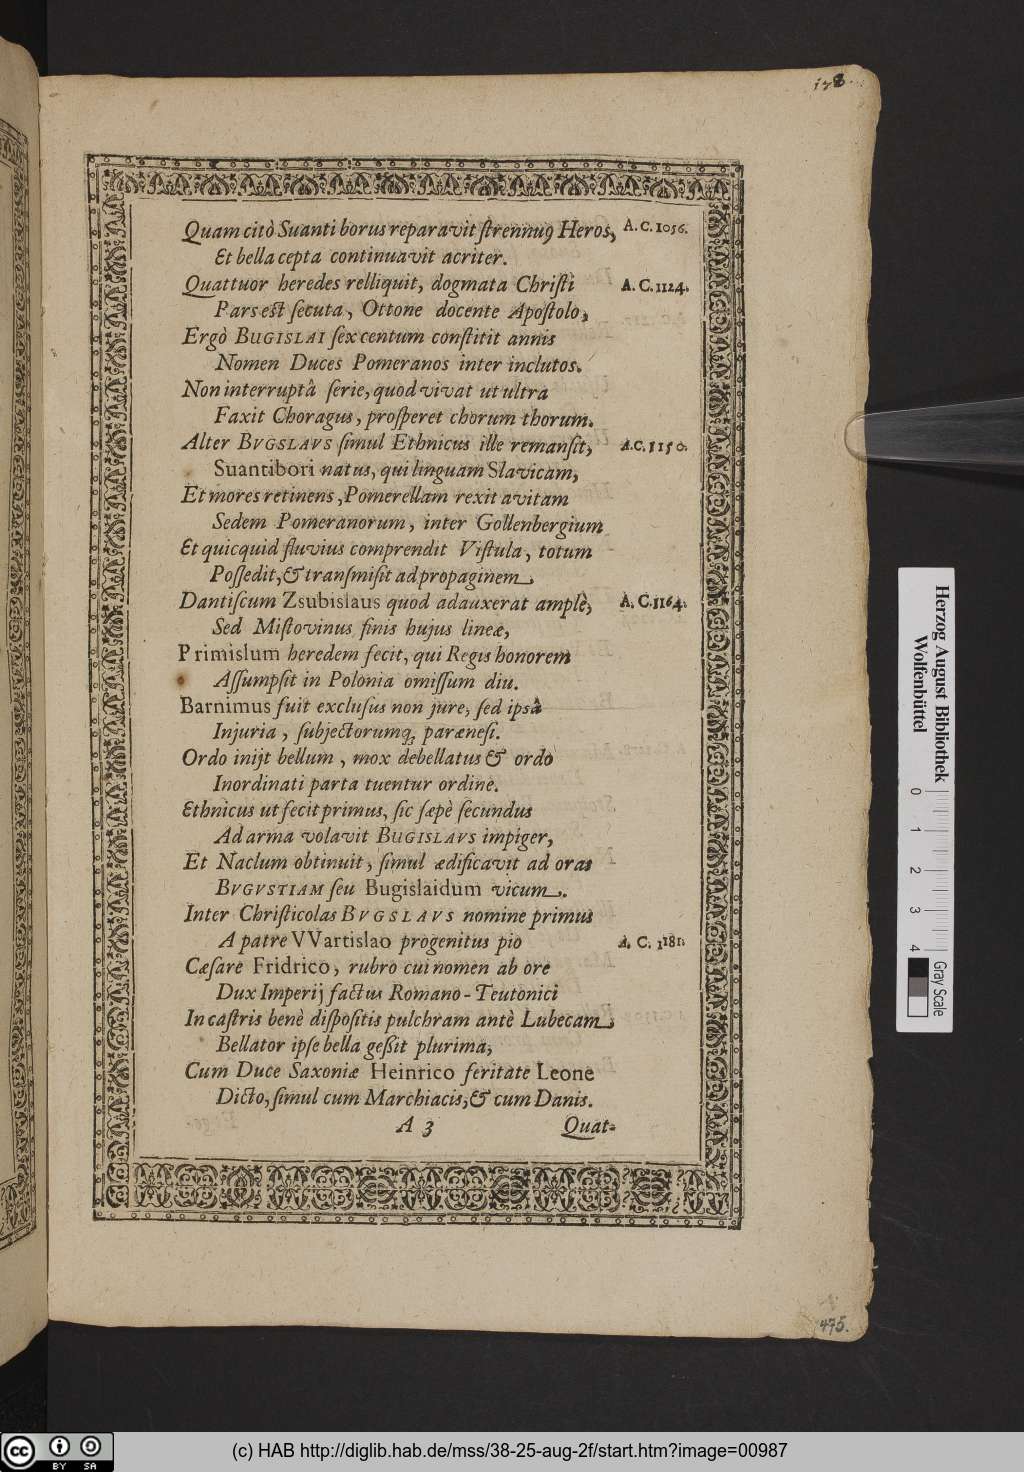 138
Quam citò Suanti borus reparavit ſtrennuꝯ Heros, A. C. 1056.
Et bella cepta continuavit acriter.
Quattuor heredes relliquit, dogmata Chriſti A. C. 1124.
Pars eſt ſecuta, Ottone docente Apoſtolo,
Ergò BUGISLAI ſex centum conſtitit annis
Nomen Duces Pomeranos inter inclutos.
Non interruptâ ſerie, quod vivat ut ultra
Faxit Choragus, proſperet chorum thorum.
Alter BVGSLAVS ſimul Ethnicus ille remanſit, A.C. 1150.
Suantibori natus, qui linguam Slavicam,
Et mores retinens, Pomerellam rexit avitam
Sedem Pomeranorum, inter Gollenbergium
Et quicquid fluvius comprendit Viſtula, totum
Poſſedit, & tranſmiſit ad propaginem,
Dantiſcum Zsubislaus quod adauxerat amplè, A. C. 1164.
Sed Miſtovinus finis hujus lineæ,
Primislum heredem fecit, qui Regis honorem
Aſſumpſit in Polonia omiſſum diu.
Barnimus fuit excluſus non jure, ſed ipsâ
Injuria, ſubjectorumq; paræneſi.
Ordo inijt bellum, mox debellatus & ordo
Inordinati parta tuentur ordine.
Ethnicus ut fecit primus, ſic ſæpè ſecundus
Ad arma volavit BUGISLAVS impiger,
Et Naclum obtinuit, ſimul ædificavit ad oras
BVGVSTIAM ſeu Bugislaidum vicum.
Inter Chriſticolas BVGSLAVS nomine primus
A patre VVartislao progenitus pio A. C. 1181.
Cæſare Fridrico, rubro cui nomen ab ore
Dux Imperij factus Romano-Teutonici
In caſtris benè diſpoſitis pulchram antè Lubecam,
Bellator ipſe bella geßit plurima,
Cum Duce Saxoniæ Heinrico feritate Leone
Dicto, ſimul cum Marchiacis, & cum Danis.
A 3 Quat-
475.
Herzog August Bibliothek
Wolfenbüttel
0 1 2 3 4
Gray Scale
cc BY SA
(c) HAB http://diglib.hab.de/mss/38-25-aug-2f/start.htm?image=00987